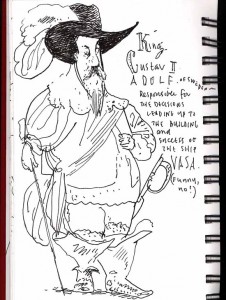 King
Gustav II
ADOLF. OF SWEDEN
RESPONSIBLE FOR
THE DECISIONS
LEADING UP TO
THE BUILDING
and
SUCCESS OF
THE SHIP
VASA.
(Funny,
no?)